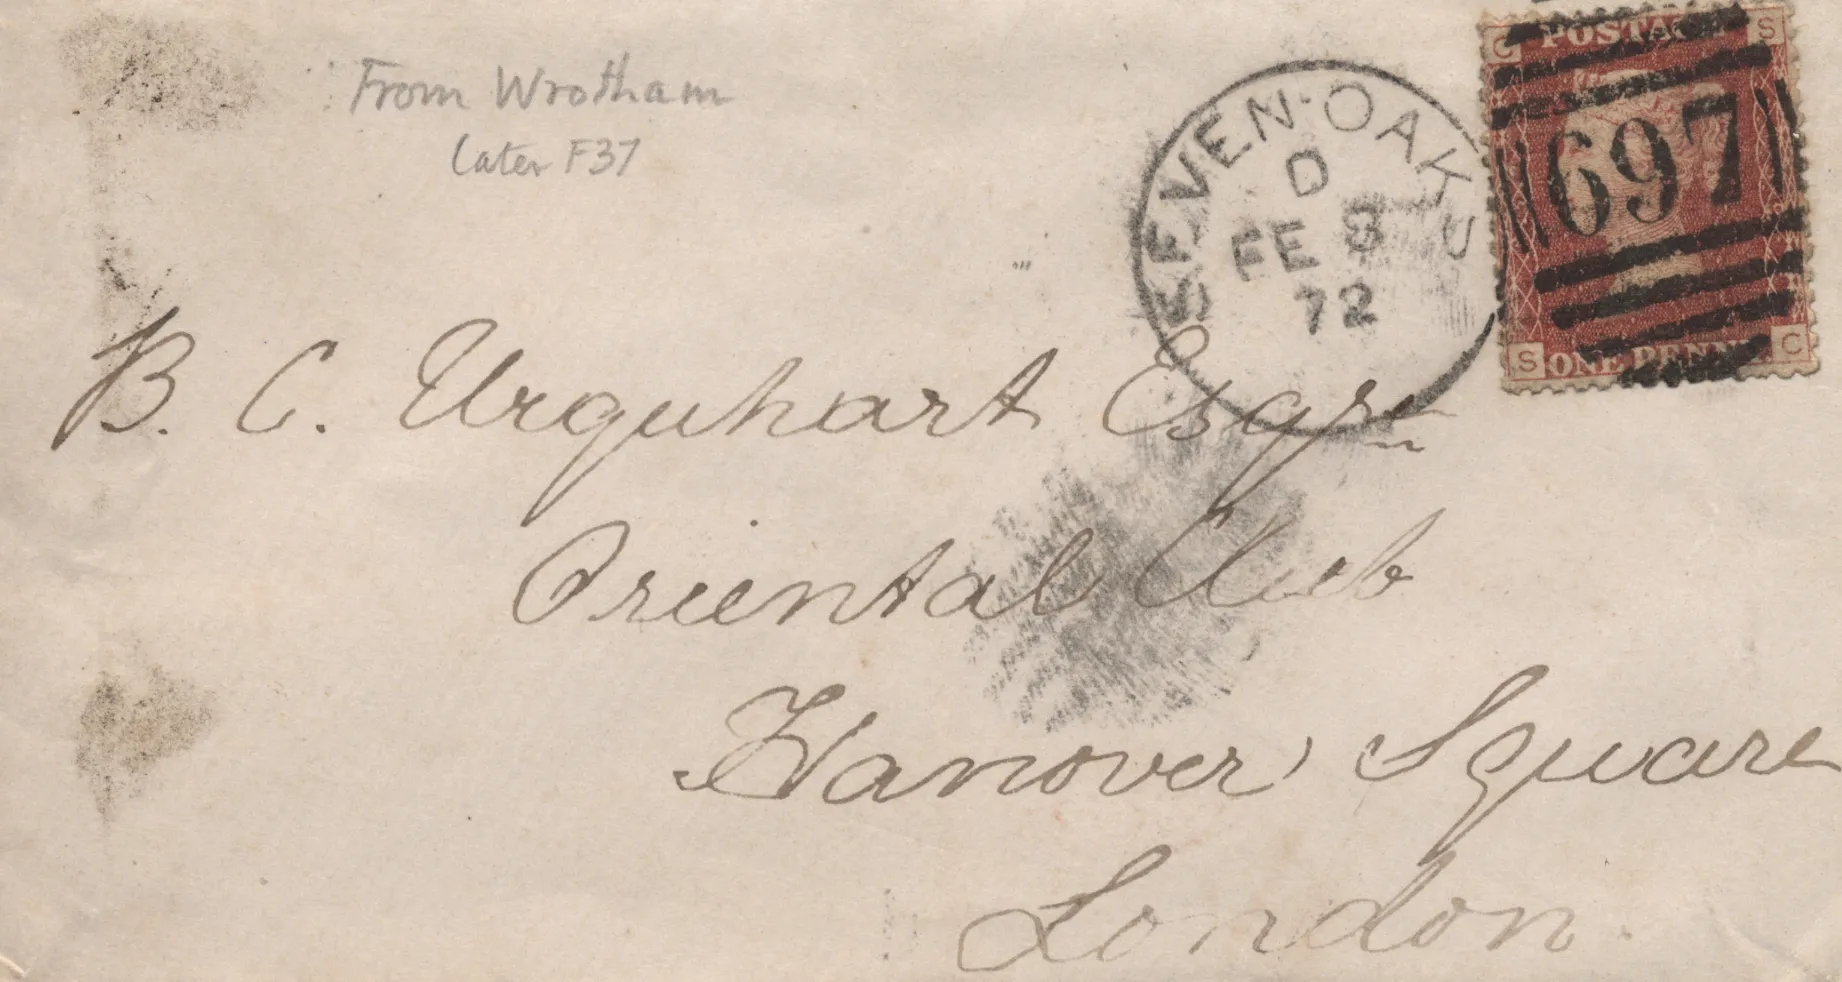 From Wrotham
later F37
SEVEN·OAKS
D
FE 8
72
C POSTAGE S
697
S ONE PENNY C
B. C. Urquhart Esqre
Oriental Club
Hanover Square
London.